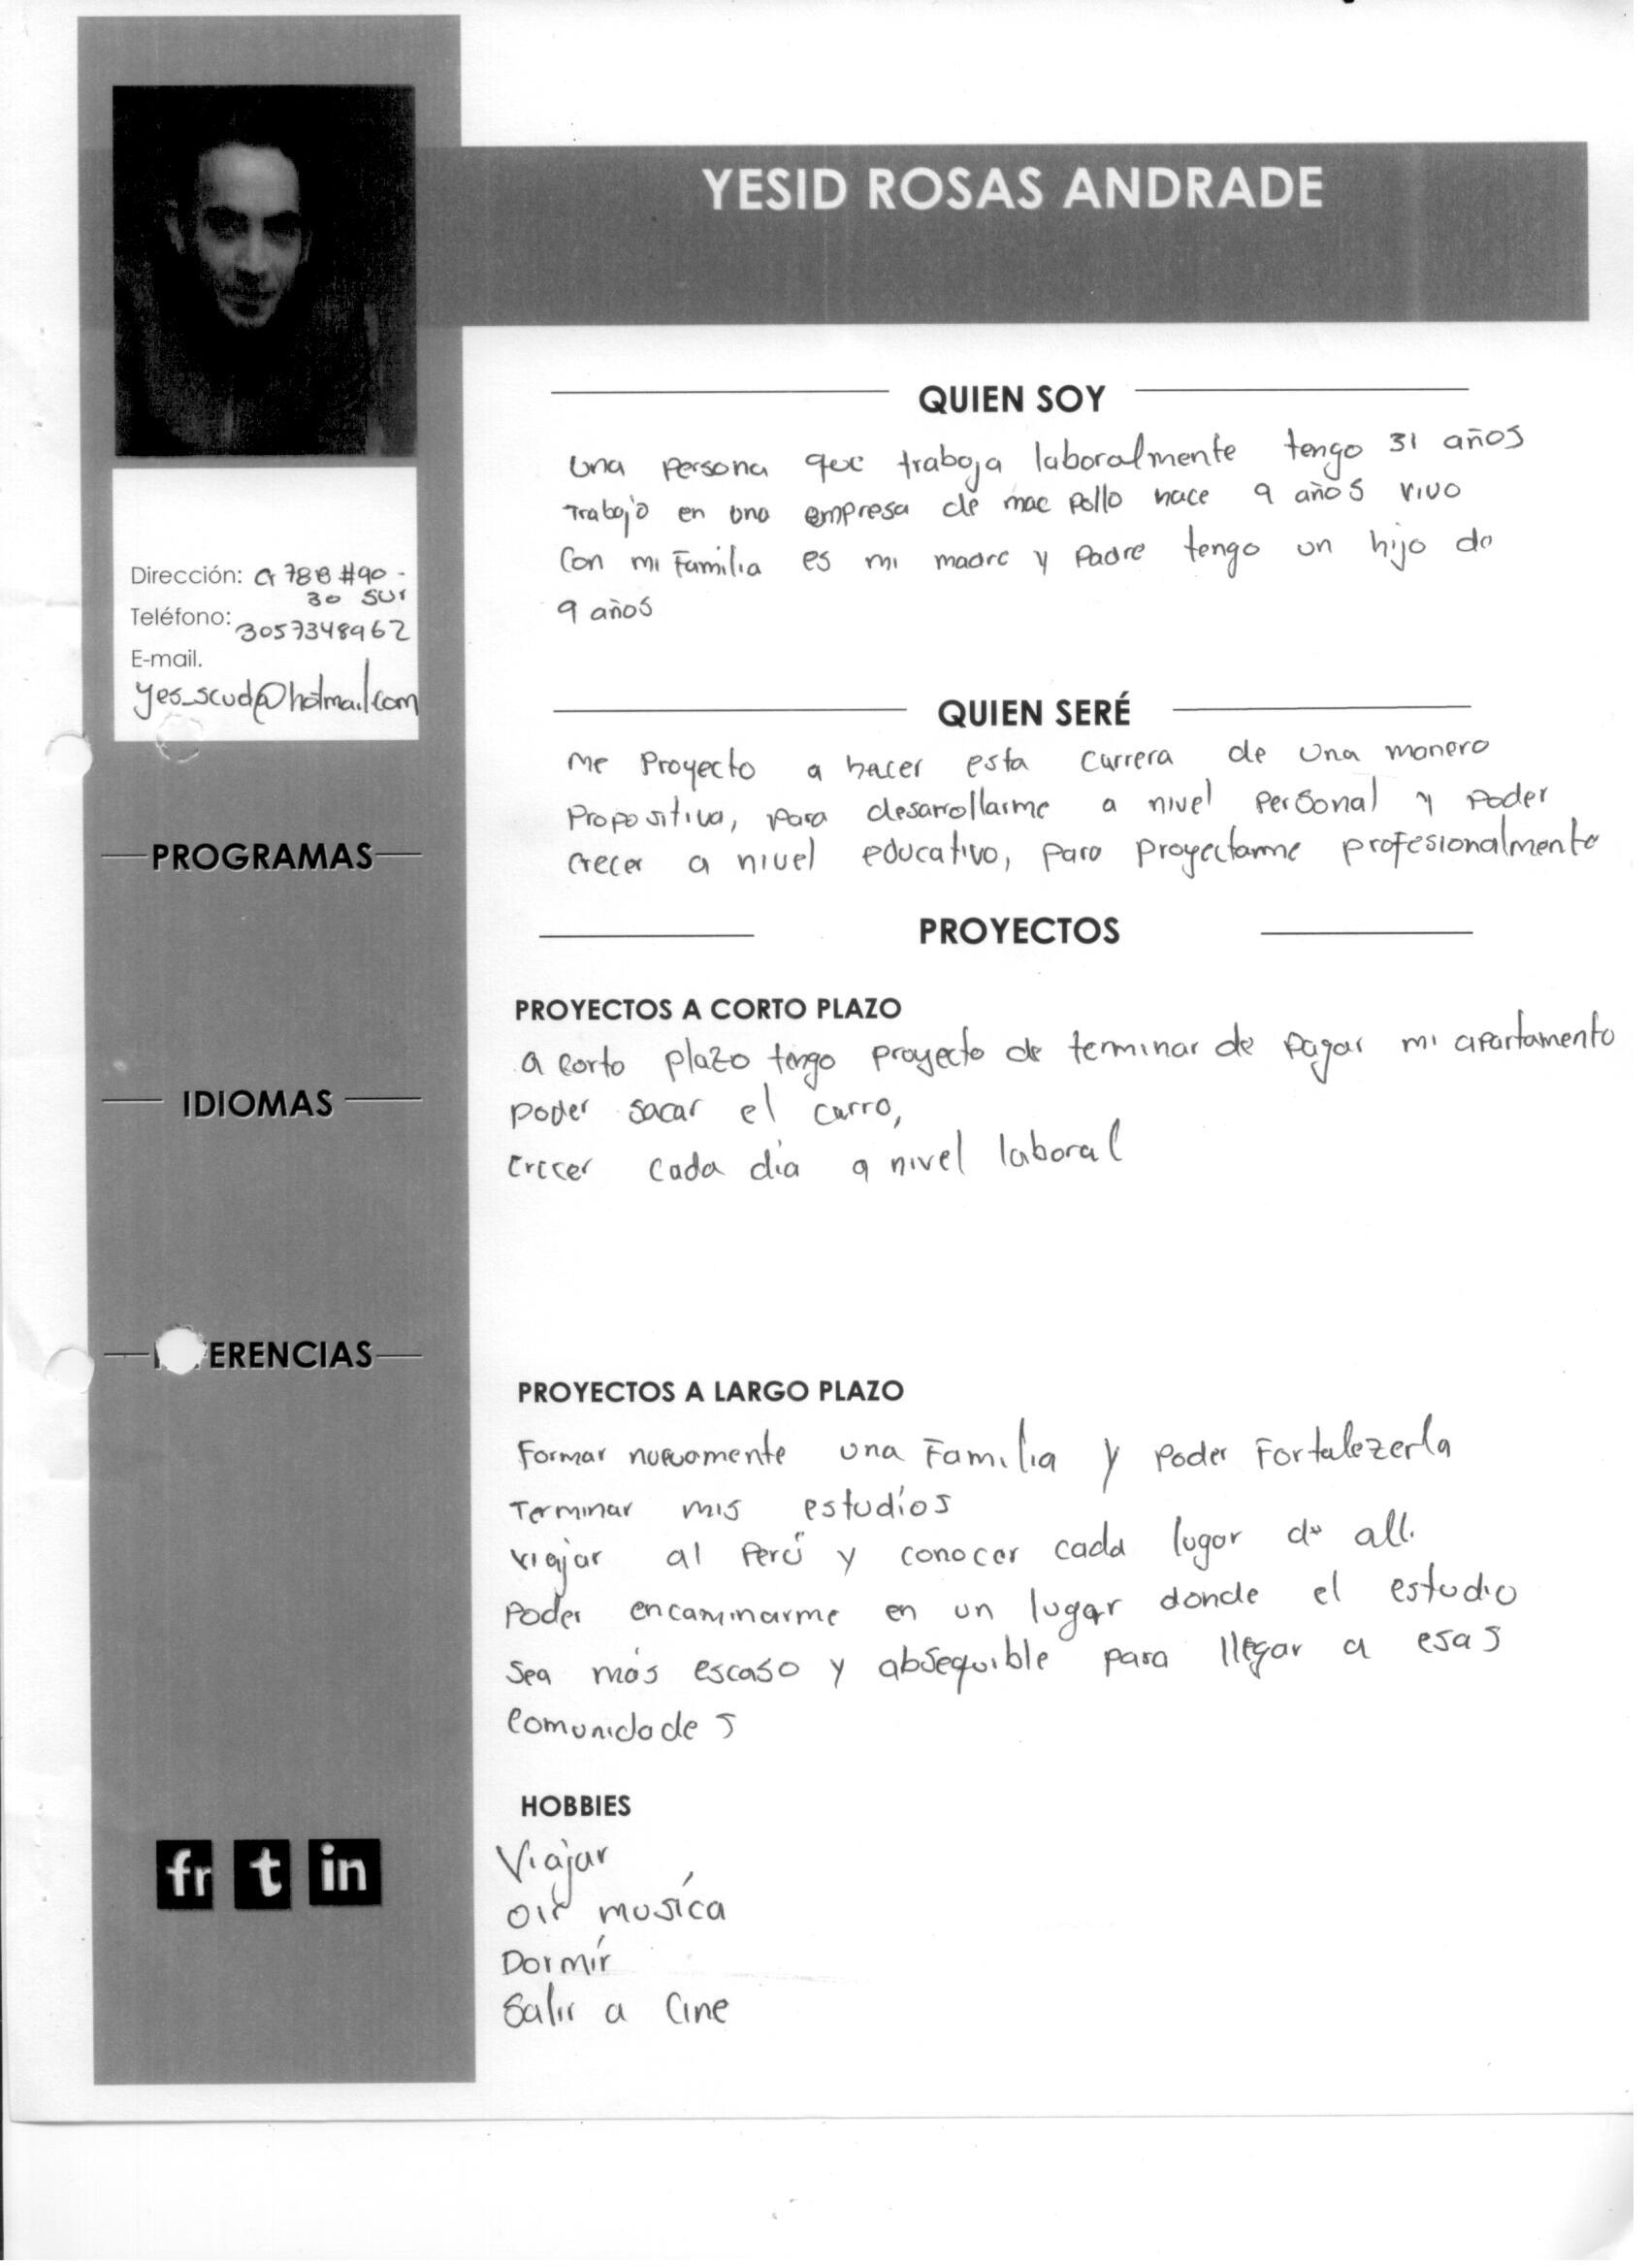 YESID ROSAS ANDRADE
Dirección: Cr 78B #90 -
30 sur
Teléfono: 3057348962
E-mail.
yes_scud@hotmail.com
PROGRAMAS
IDIOMAS
ERENCIAS
fr t in
QUIEN SOY
Una persona que trabaja laboralmente tengo 31 años
trabajo en una empresa de mac pollo hace 9 años vivo
Con mi Familia es mi madre y Padre tengo un hijo de
9 años
QUIEN SERÉ
Me Proyecto a hacer esta carrera de una manera
Propositiva, para desarrollarme a nivel personal y Poder
crecer a nivel educativo, para proyectarme profesionalmente
PROYECTOS
PROYECTOS A CORTO PLAZO
a corto plazo tengo proyecto de terminar de Pagar mi apartamento
poder sacar el carro,
crecer cada dia a nivel laboral
PROYECTOS A LARGO PLAZO
Formar nuevamente una Familia y Poder Fortalezerla
Terminar mis estudios
viajar al Perú y conocer cada lugar de alli
Poder encaminarme en un lugar donde el estudio
Sea más escaso y absequible para llegar a esas
Comunidades
HOBBIES
Viajar
oir musíca
Dormír
Salir a Cine